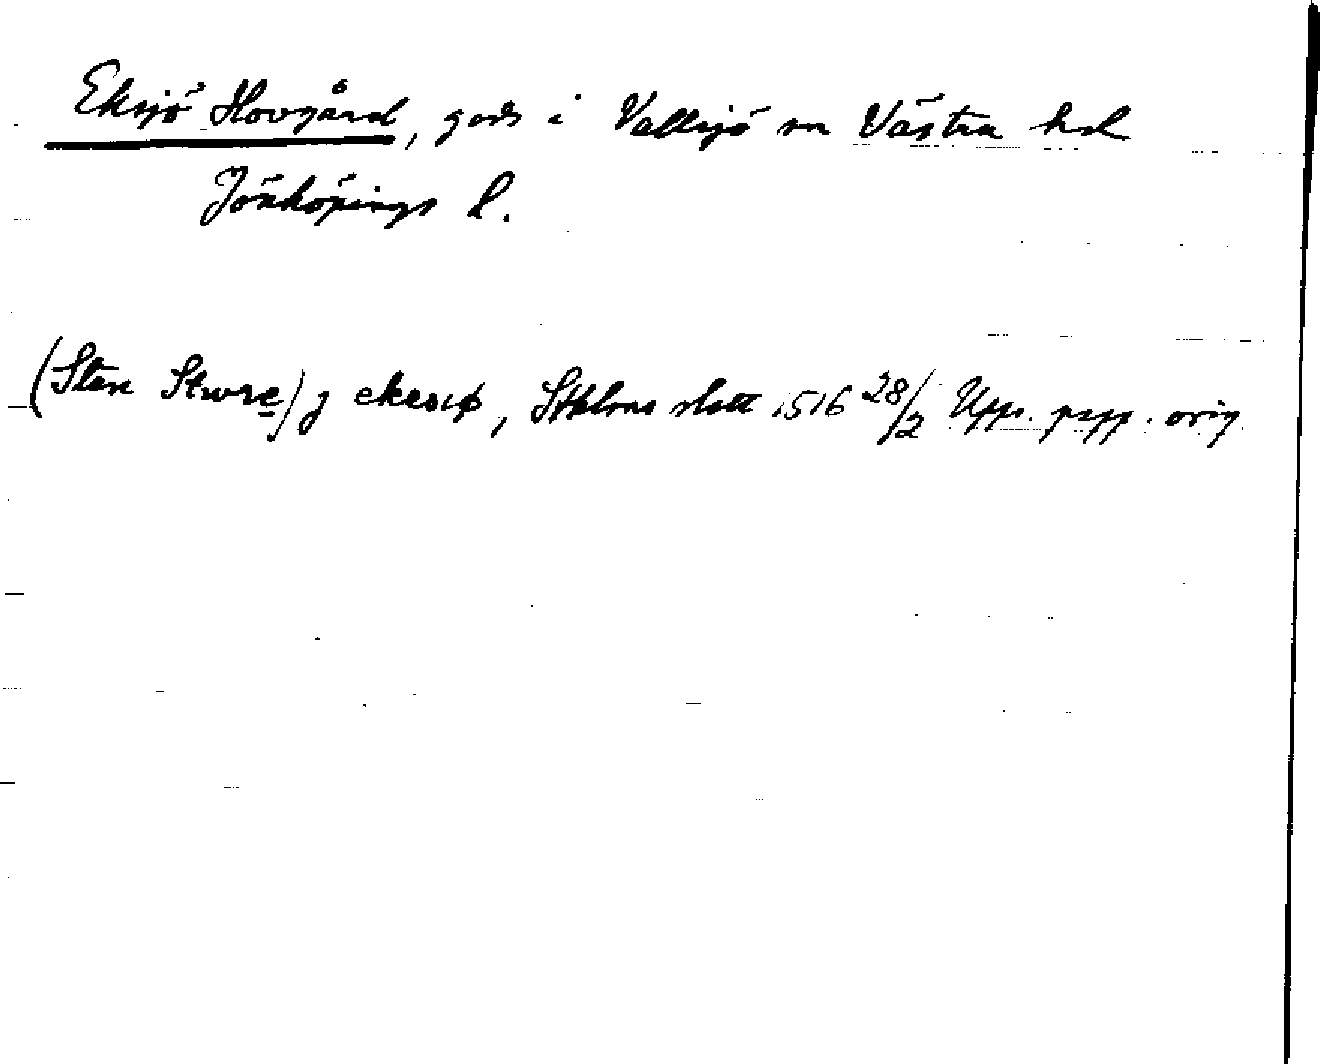 Eksjö Hovgård, gods i Vallsjö sn Västra hd
Jönköpings l.
(Sten Sture) j ekesiø, Sthlms slott 1516 28/2 Upps. papp. orig